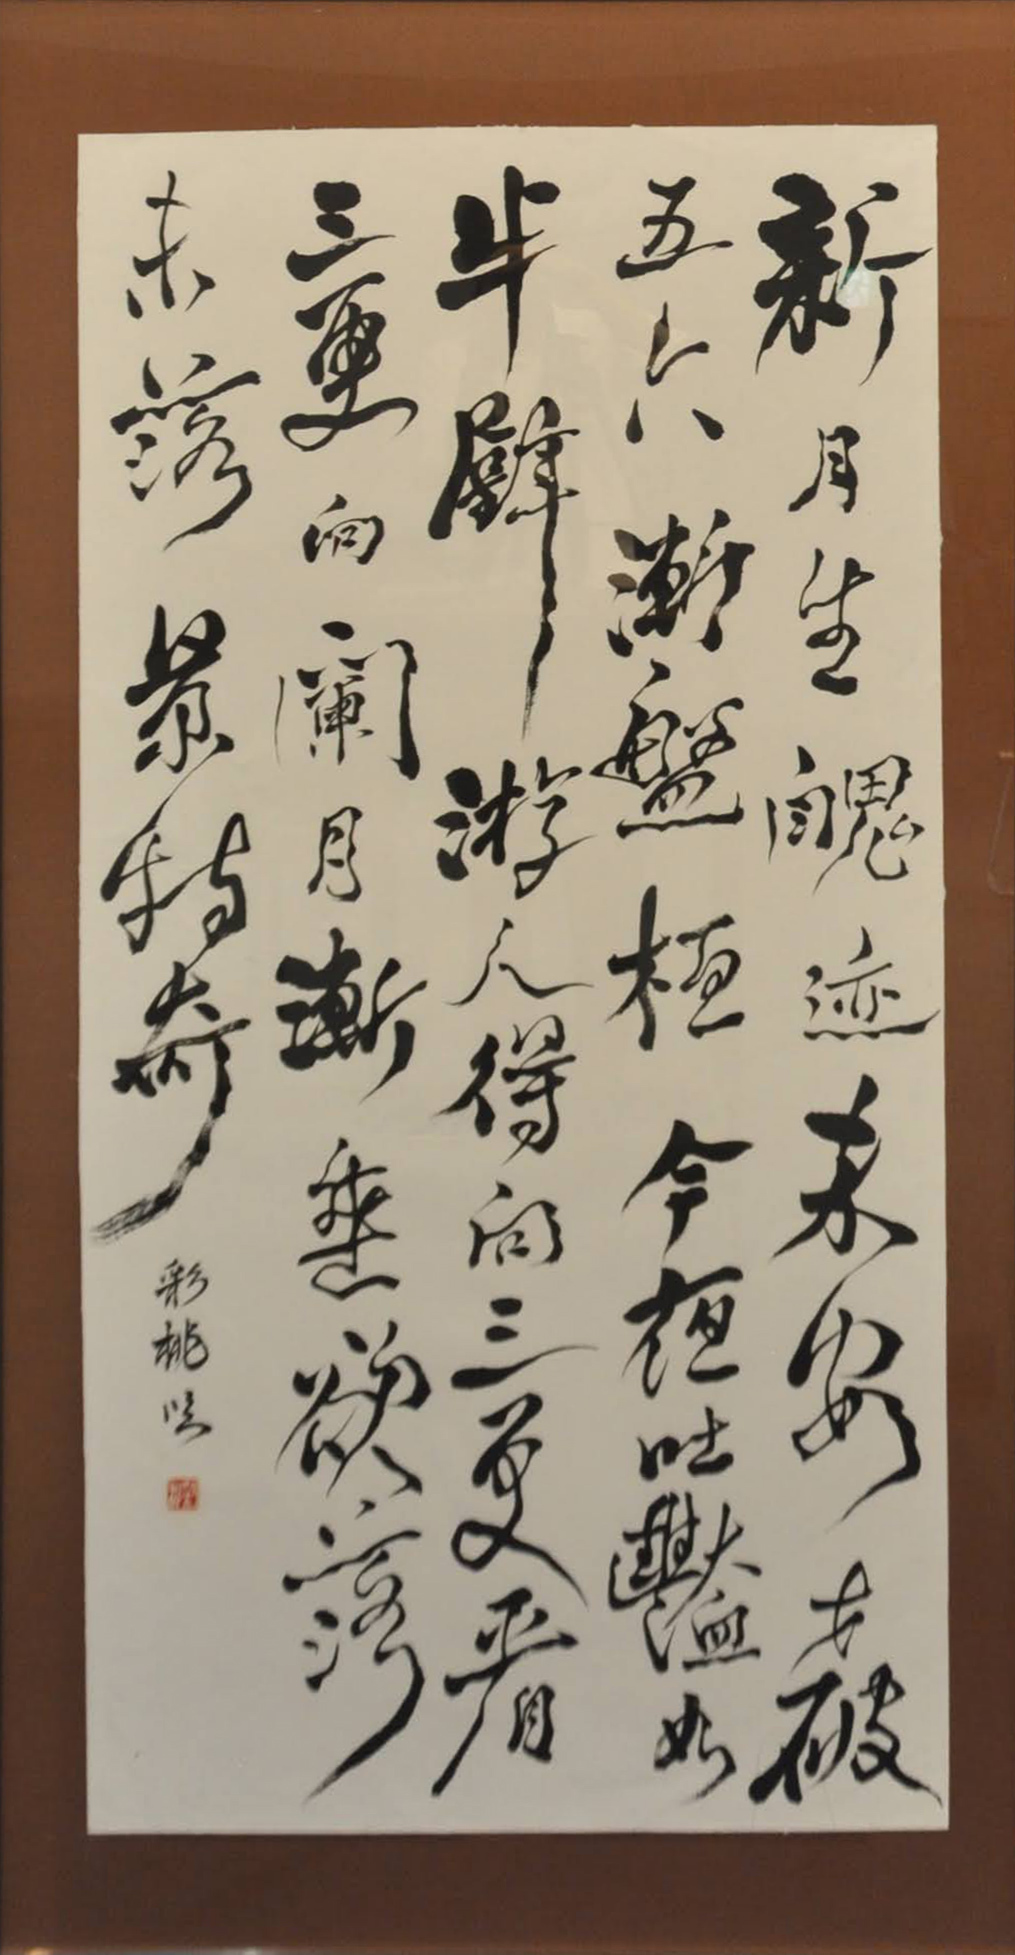 新月生魄迹未安才破
五六漸盤桓今夜吐豔如
半璧游人得向三更看
三更向闌月漸垂欲落
未落景特奇
彩桃